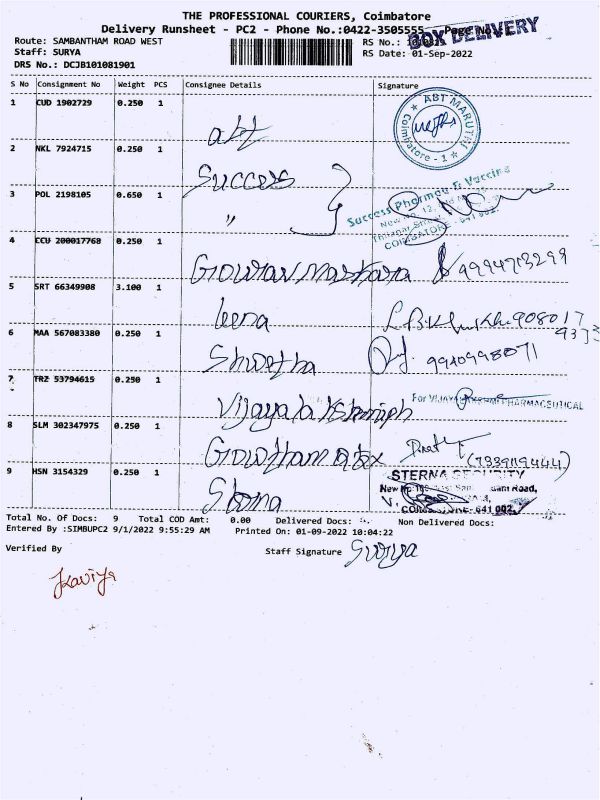 THE PROFESSIONAL COURIERS, Coimbatore
Delivery Runsheet - PC2 - Phone No.:0422-3505555 Page No.
BOX DELIVERY
Route: SAMBANTHAM ROAD WEST RS No.:
Staff: SURYA RS Date: 01-Sep-2022
DRS No.: DCJB101081901
S No Consignment No Weight PCS Consignee Details Signature
1 CUD 1902729 0.250 1
ABT MARUTHI
Coimbatore - 1
abt
2 NKL 7924715 0.250 1
Success
Success Pharma & Vaccine
3 POL 2198105 0.650 1
"
COIMBATORE - 641 002.
4 CCU 200017768 0.250 1
Gowtav 9994713299
5 SRT 66349908 3.100 1
leena 908017
6 MAA 567083380 0.250 1
Shwetha 9940998071
7 TRZ 53794615 0.250 1
Vijayalakshmiph For VIJAYALAKSHMI PHARMACEUTICAL
8 SLM 302347975 0.250 1
Gowtham (7339119444)
9 HSN 3154329 0.250 1
STERNA SECURITY
Road,
COIMBATORE-641 002
Total No. Of Docs: 9 Total COD Amt: 0.00 Delivered Docs: Non Delivered Docs:
Entered By :SIMBUPC2 9/1/2022 9:55:29 AM Printed On: 01-09-2022 10:04:22
Verified By Staff Signature Surya
Kaviya